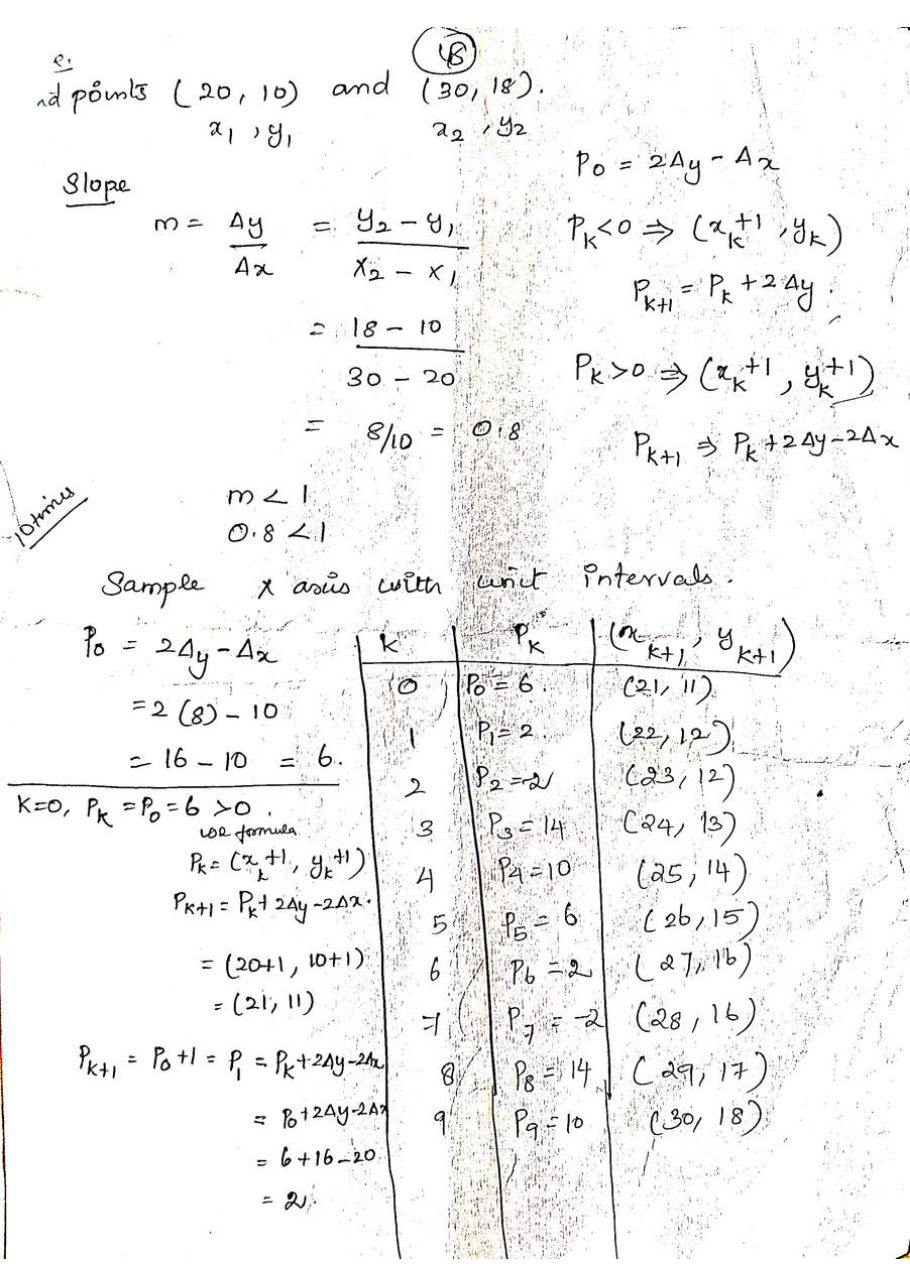 e.
18
nd points (20, 10) and (30, 18).
x1 , y1 x2 , y2
Slope
m = Δy/Δx = (y2 - y1)/(x2 - x1)
= (18 - 10)/(30 - 20)
= 8/10 = 0.8
m < 1
0.8 < 1
P0 = 2Δy - Δx
Pk<0 ⇒ (xk+1, yk)
Pk+1 = Pk + 2Δy.
Pk>0 ⇒ (xk+1, yk+1)
Pk+1 ⇒ Pk + 2Δy - 2Δx
10 times
Sample x axis with unit intervals.
P0 = 2Δy - Δx
= 2 (8) - 10
= 16 - 10 = 6.
K=0, Pk = P0 = 6 >0.
use formula
Pk = (xk+1, yk+1)
Pk+1 = Pk + 2Δy - 2Δx.
= (20+1, 10+1)
= (21, 11)
Pk+1 = P0+1 = P1 = Pk+2Δy-2Δx
= P0+2Δy-2Δx
= 6+16-20
= 2
k Pk (xk+1, yk+1)
0 P0 = 6. (21, 11)
1 P1 = 2. (22, 12)
2 P2 = -2 (23, 12)
3 P3 = 14 (24, 13)
4 P4 = 10 (25, 14)
5 P5 = 6 (26, 15)
6 P6 = 2 (27, 16)
7 P7 = -2 (28, 16)
8 P8 = 14 (29, 17)
9 P9 = 10 (30, 18)